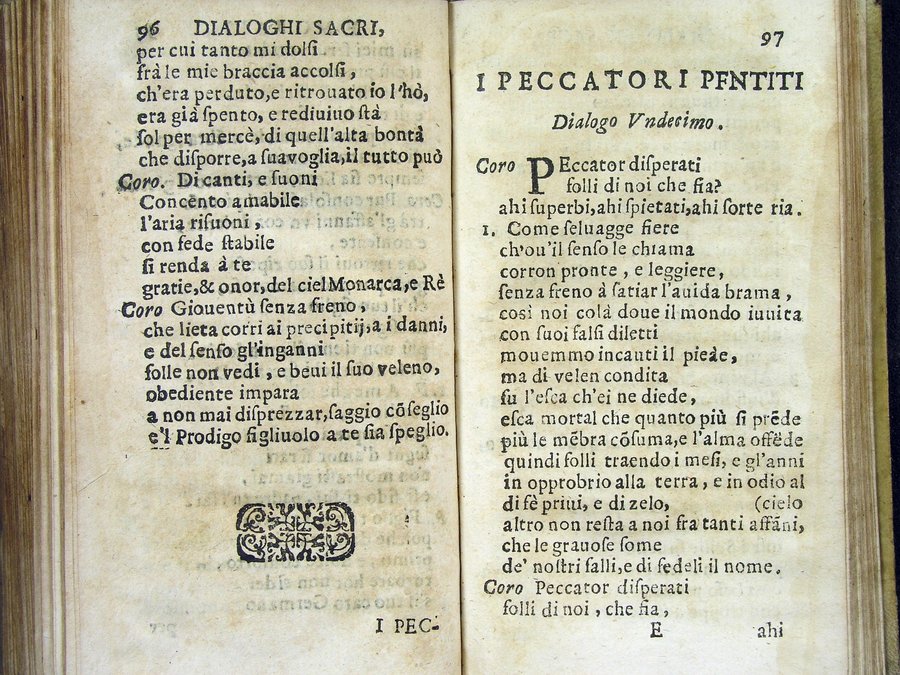 96 DIALOGHI SACRI,
per cui tanto mi dolſi
frà le mie braccia accolſi,
ch'era perduto, e ritrouato io l'hò,
era già ſpento, e rediuiuo ſtà
ſol per mercè, di quell'alta bontà
che diſporre, a ſua voglia, il tutto può
Coro. Di canti, e ſuoni
Concento amabile
l'aria riſuoni,
con fede ſtabile
ſi renda à te
gratie, & onor, del ciel Monarca, e Rè
Coro Giouentù ſenza freno,
che lieta corri ai precipitij, a i danni,
e del ſenſo gl'inganni
folle non vedi, e beui il ſuo veleno,
obediente impara
a non mai diſprezzar, ſaggio cõſeglio
e'l Prodigo figliuolo a te ſia ſpeglio.
I PEC-
97
I PECCATORI PENTITI
Dialogo Vndecimo.
Coro PEccator diſperati
folli di noi che fia?
ahi ſuperbi, ahi ſpietati, ahi ſorte ria.
1. Come ſeluagge fiere
ch'ou'il ſenſo le chiama
corron pronte, e leggiere,
ſenza freno à ſatiar l'auida brama,
così noi colà doue il mondo iuuita
con ſuoi falſi diletti
mouemmo incauti il piede,
ma di velen condita
fu l'eſca ch'ei ne diede,
eſca mortal che quanto più ſi prẽde
più le mẽbra cõſuma, e l'alma offẽde
quindi folli traendo i meſi, e gl'anni
in opprobrio alla terra, e in odio al
di fè priui, e di zelo, (cielo
altro non reſta a noi fra tanti affãni,
che le grauoſe ſome
de' noſtri falli, e di fedeli il nome.
Coro Peccator diſperati
folli di noi, che fia,
E ahi